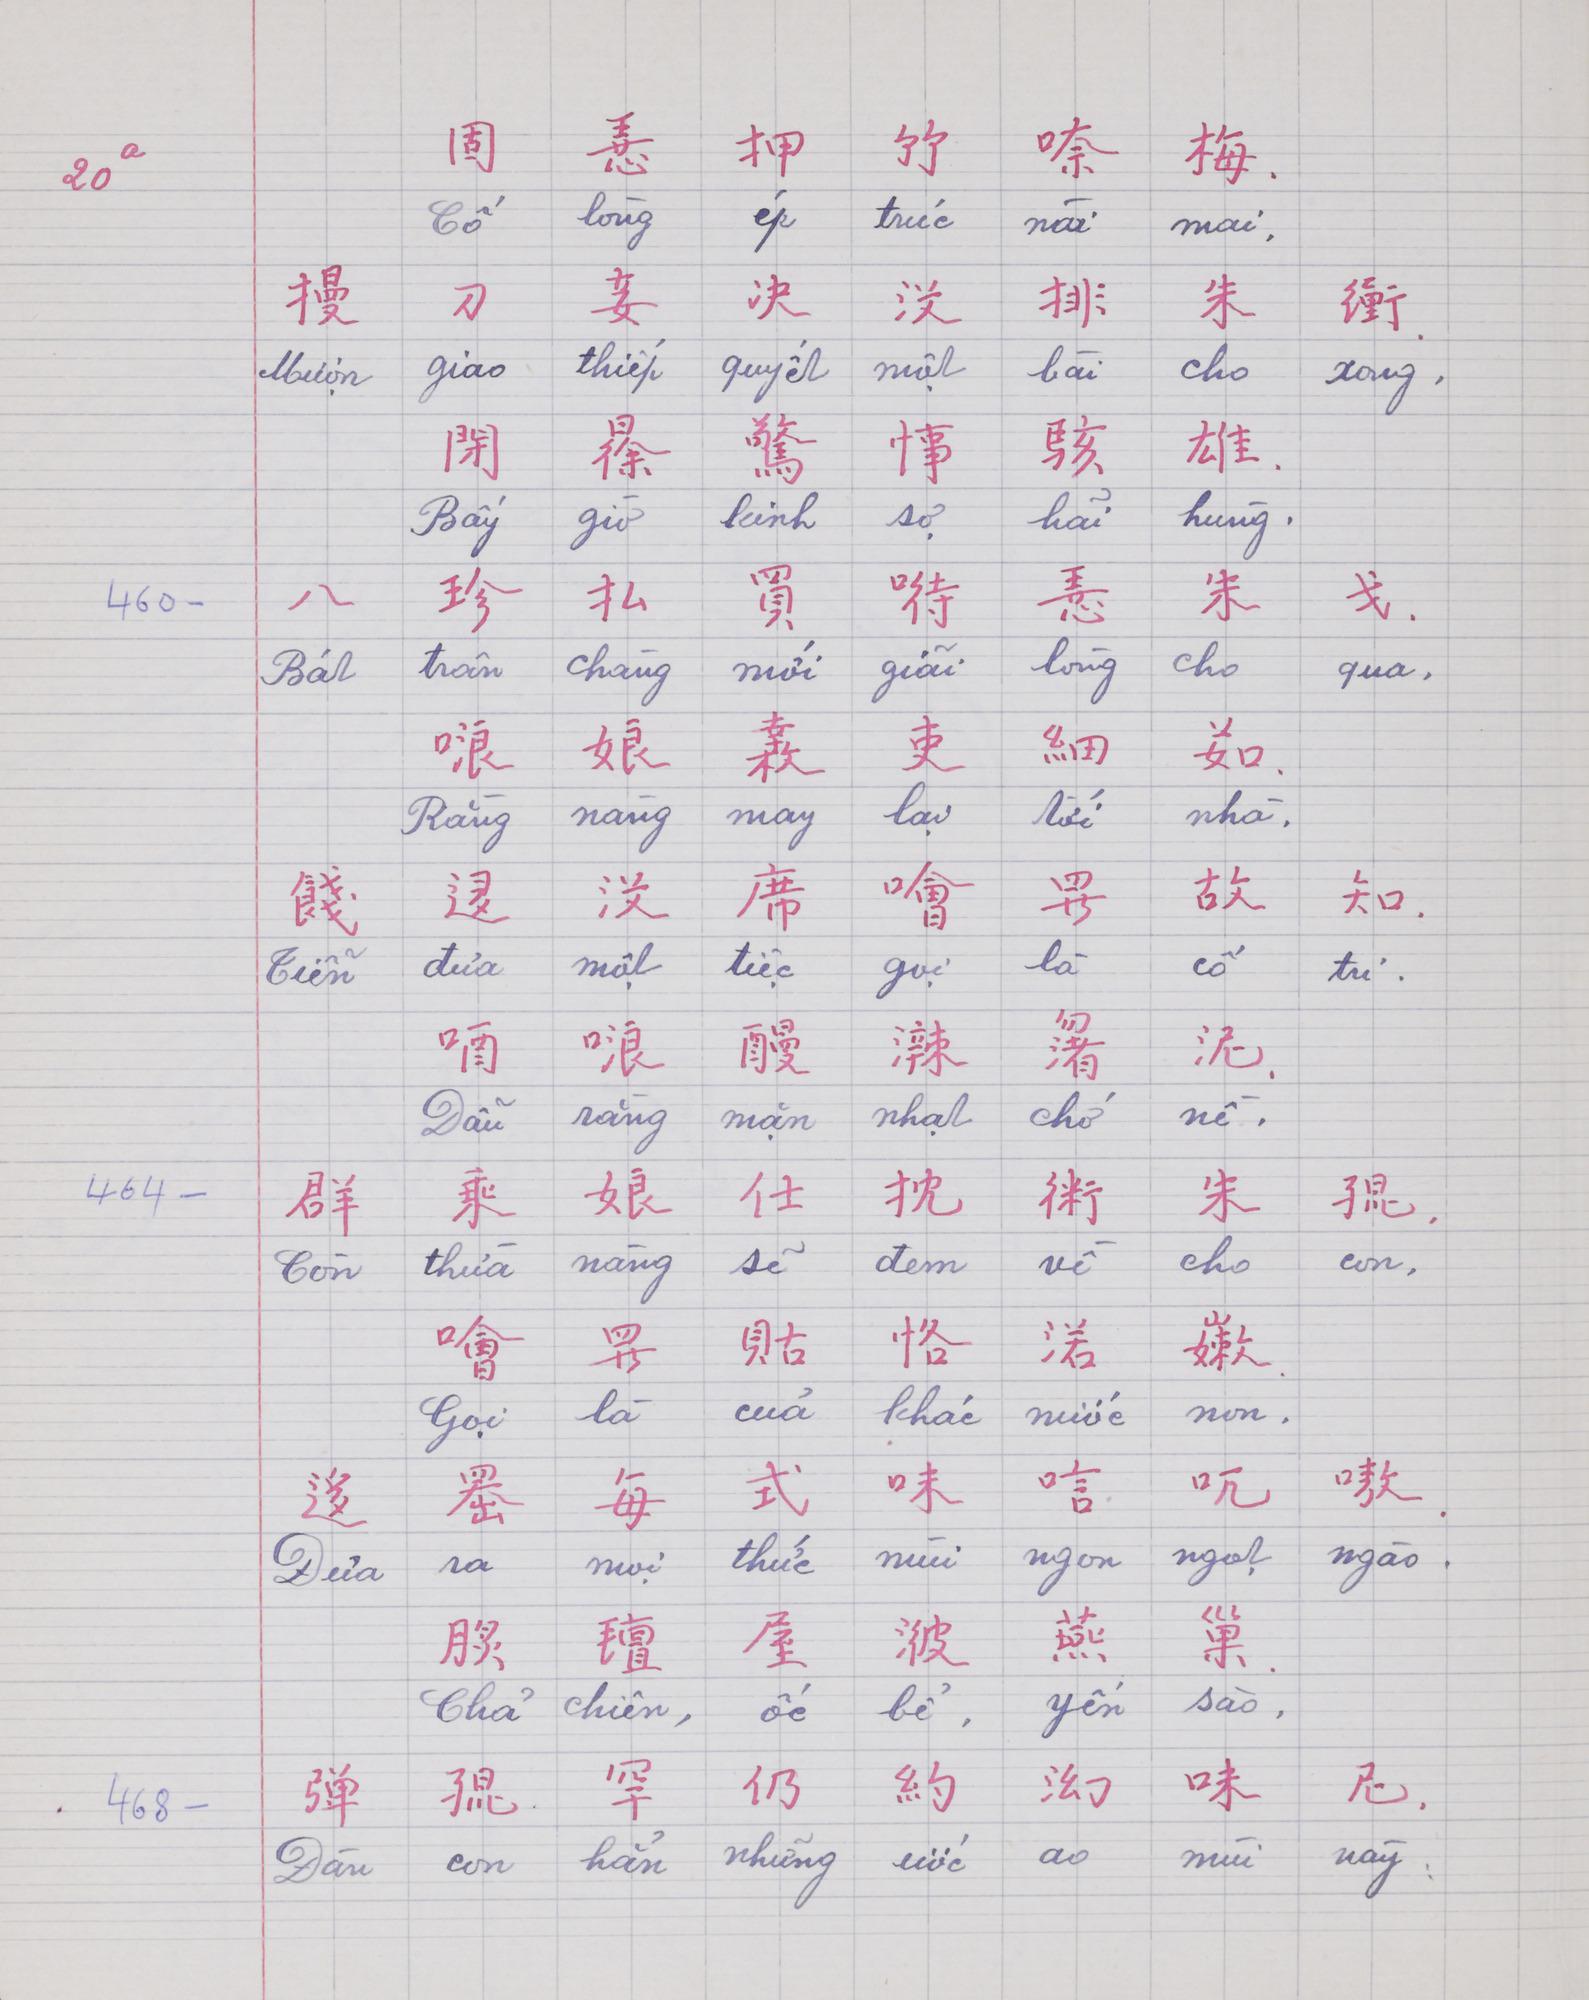 20a
固 㥁 押 竹 㗈 梅.
Cố lòng ép trúc nài mai.
擾 刀 妾 决 没 排 朱 衝.
Mượn giao thiếp quyết một bài cho xong,
閉 驚 駭 雄.
Bấy giờ kinh sợ hãi hùng.
460- 八 珍 払 買 㥁 朱 戈.
Bát trân chàng mới giãi lòng cho qua,
哴 娘 吏 細 茹.
Rằng nàng may lại tới nhà,
餞 没 席 噲 故 知.
Tiễn đưa một tiệc gọi là cố tri.
哴 泥.
Dẫu rằng mặn nhạt chớ nề,
464- 群 乘 娘 仕 抌 術 朱 𡥵.
Còn thừa nàng sẽ đem về cho con,
噲 貼 恪 渃 嫩.
Gọi là của khác nước non,
每 式 味 唁 嗷.
Đưa ra mọi thức mùi ngon ngọt ngào.
屋 波 燕 巢.
Chả chiên, ốc bể, yến sào,
468- 弹 𡥵 罕 仍 約 泑 味 尼.
Đàn con hẳn những ước ao mùi này.